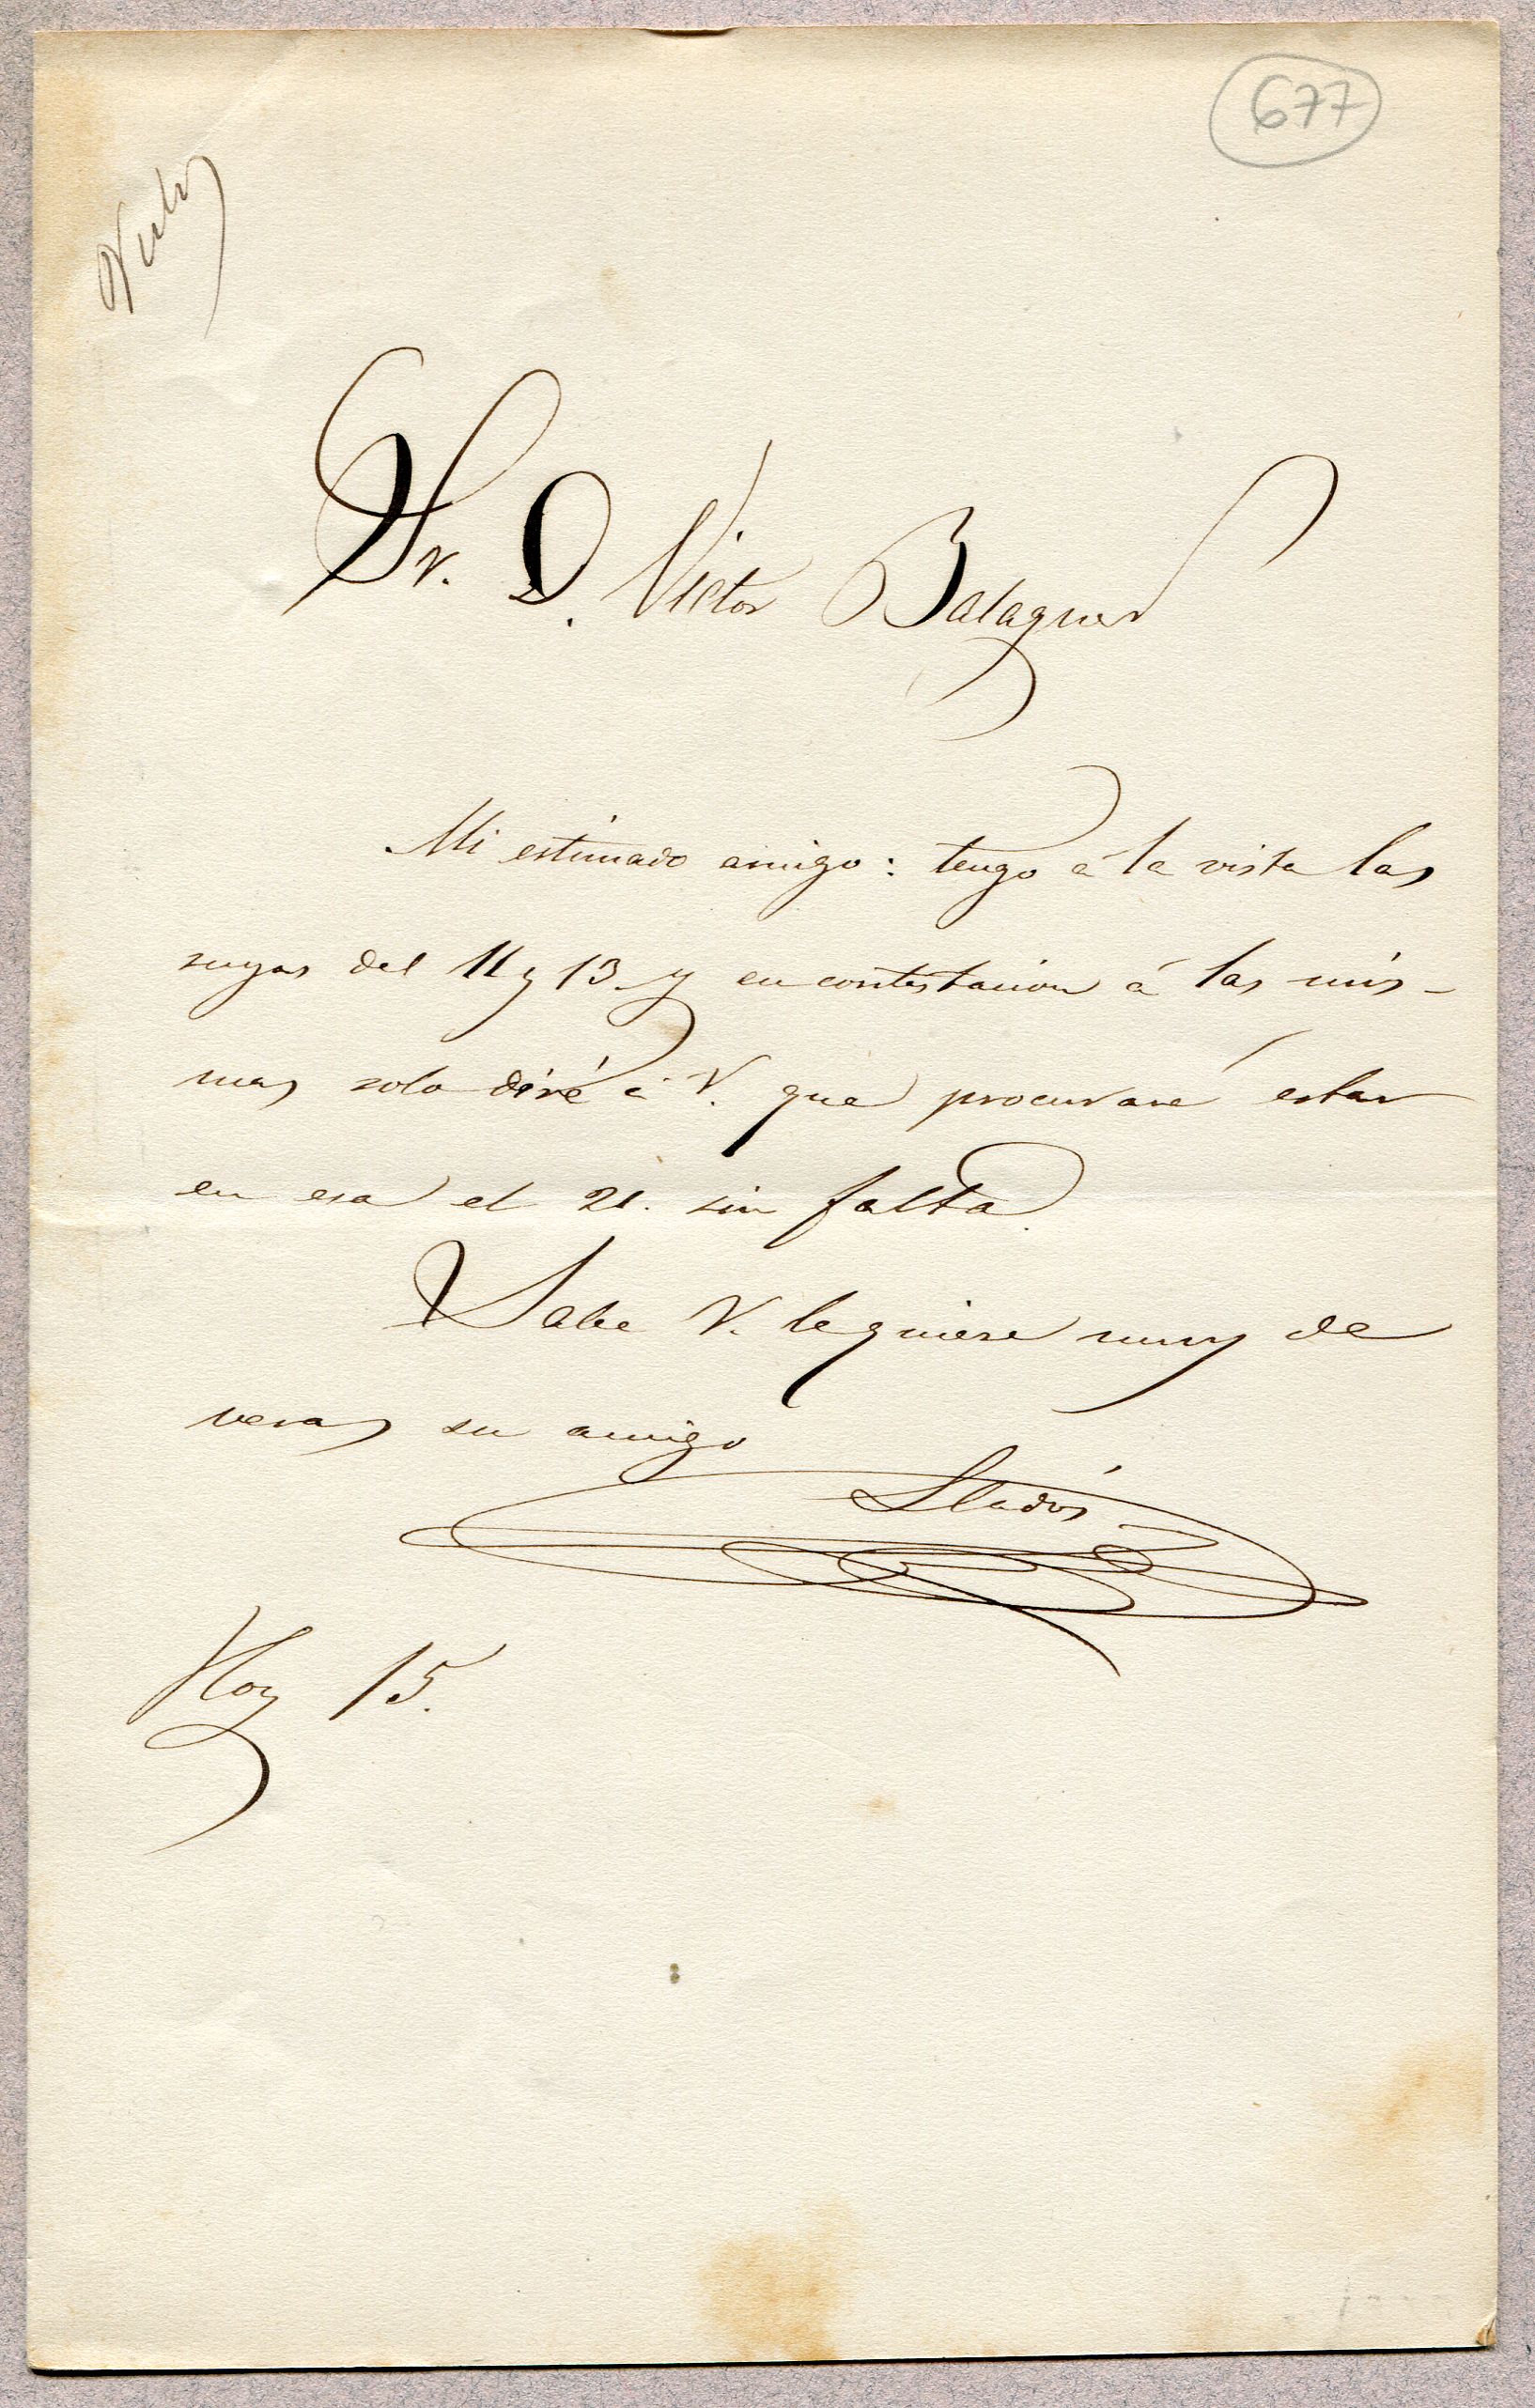 677
Sr. D. Victor Balaguer
Mi estimado amigo: tengo á la vista las
suyas del 11 y 13 y en contestacion á las mis-
mas solo diré á V. que procuraré estar
en esa el 21. sin falta.
Sabe V. le quiere muy de
veras su amigo
Lladós
Hoy 15.